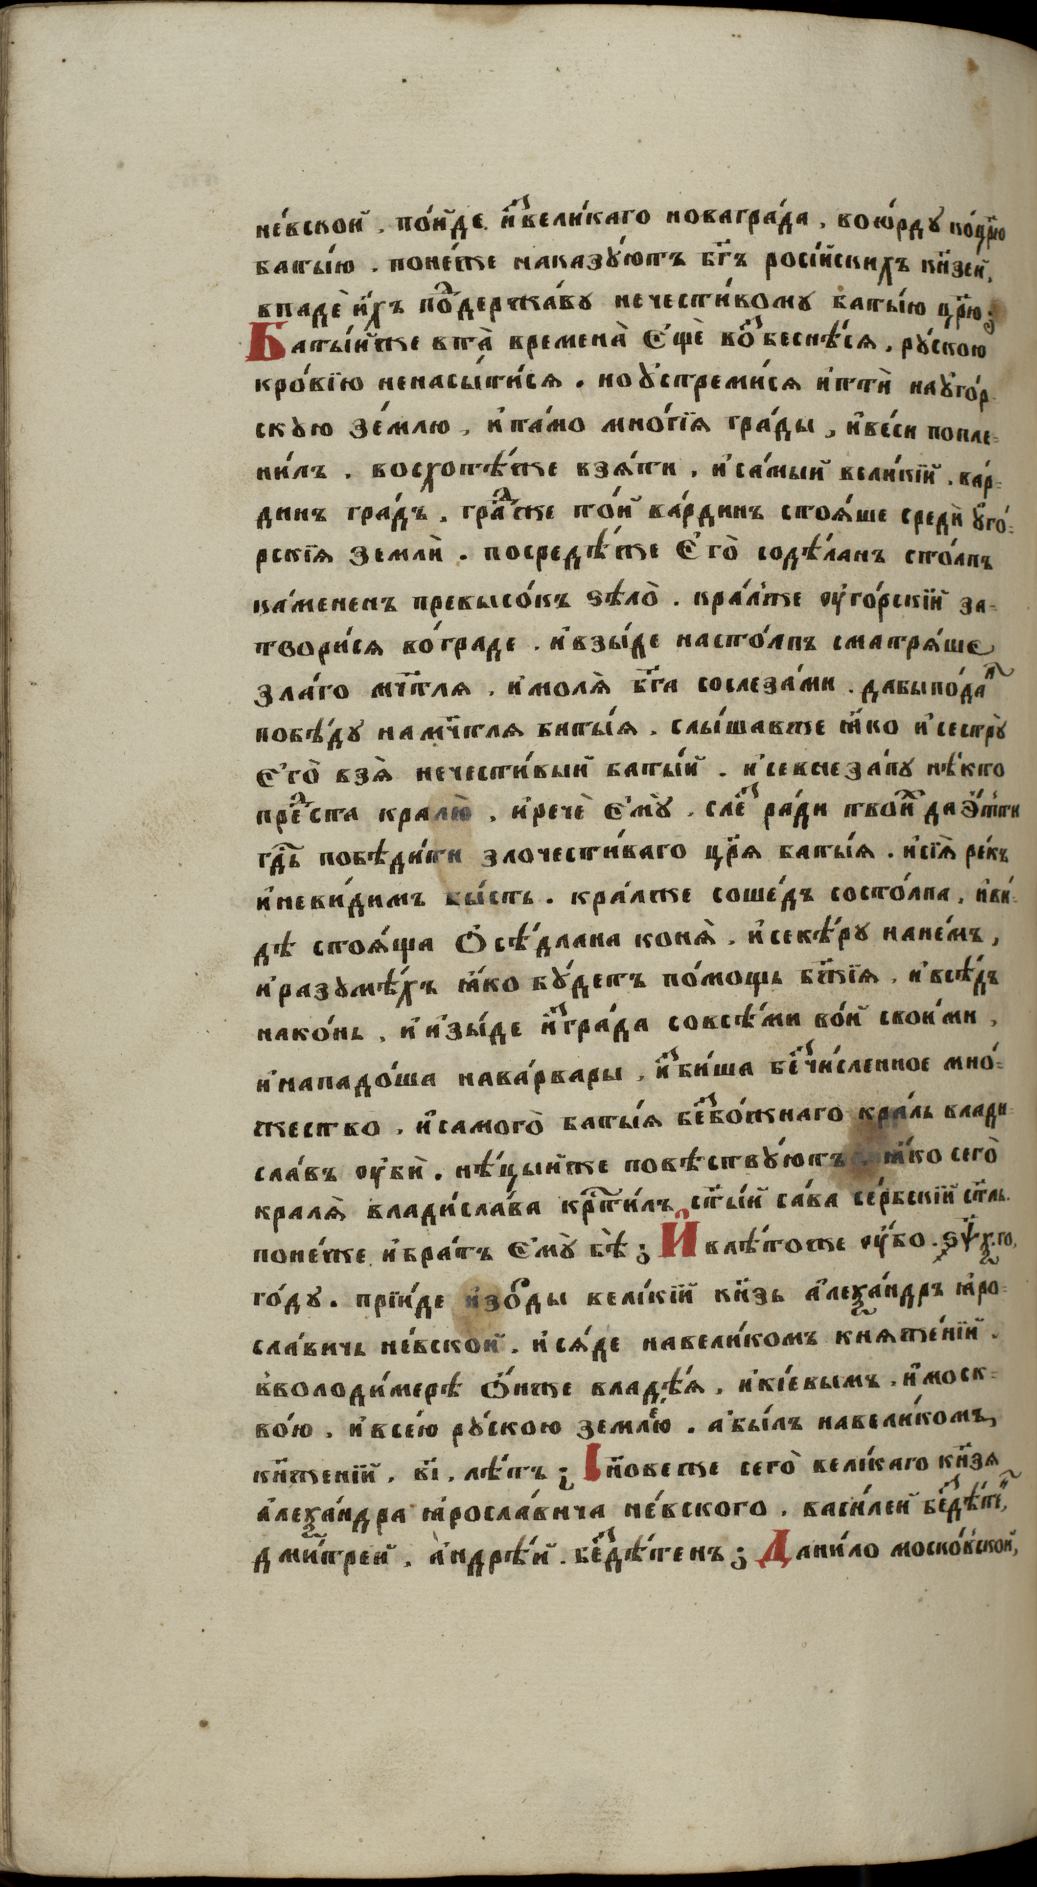 не́вской . по́йде и҆зⷭ҇вели́каго новагра́да , воѻ҆рду ко́црⷭ҇ю
баты́ю . поне́же наказу́ютъ бг҃ъ росі́йскихъ кн҃зей,
впадѐ и҆́хъ поⷣдержа́ву нечести́вому баты́ю цр҃ю ;
Баты́йже вта̀ времена̀ є҆щѐ воⷥбеснѣ́ся , ру́скою
кро́вїю ненасы́тися . но у҆стреми́ся и҆ттѝ наꙋго́р-
скую зе́млю , и҆та́мо мно́гїя гра́ды , и҆ве́си попле-
ни́лъ . восхотѣ́же взя́ти , и҆са́мый вели́кїй . ва́р-
динъ гра́дъ . граⷣже то́й ва́рдинъ стоя́ше средѝ у҆го́-
рскїя землѝ . посредѣ́же є҆гѡ̀ содѣ́ланъ сто́лпъ
ка́мененъ превысо́къ ѕѣлѡ̀ . кра́лже оу҆го́рскїй за-
твори́ся во́граде . и҆взы́де насто́лпъ сматря́ше
зла́го мч҃тля . и҆моля̀ бг҃а сослеза́ми . дабыпо́даⷧ
побѣ́ду намч҃тля батыя́ . слы́шавже ꙗ҆́ко и҆сестру̀
є҆гѡ̀ взя̀ нечести́вый баты́й . и҆севнеза́пу нѣ́кто
преⷣста кралю̀ , и҆речѐ є҆мꙋ̀ . слеⷥ ра́ди твои́ⷯ да є҆́сть
гдⷭ҇ь побѣди́ти злочести́ваго цр҃я баты́я . и҆сїя̀ ре́къ
и҆неви́димъ бы́сть . кра́лже соше́дъ состо́лпа , и҆ви́-
дѣ стоя́ща ѻ҆сѣ́длана коня̀ , и҆секѣ́ру нане́мъ ,
и҆разумѣ́хъ ꙗ҆́ко бу́детъ по́мощь бж҃їя , и҆всѣ́дъ
нако́нь , и҆ и҆зы́де и҆ⷥгра́да совсѣ́ми во́й свои́ми ,
и҆нападо́ша нава́рвары , и҆ⷥби́ша беⷥчи́сленное мно́-
жество . и҆самого̀ баты́я беⷥбо́жнаго кра́ль влади-
сла́въ оу҆бѝ . нѣ́цыйже повѣству́ютъ , ꙗ҆́ко сего̀
краля̀ владисла́ва крⷭ҇ти́лъ ст҃ы́й са́ва се́рбскїй ст҃ль.
поне́же и҆бра́тъ є҆мꙋ̀ бѣ̀ ; И҆ влѣ́тоже оу҆́бо . ҂ѕѱ҃ѯ го,
го́ду . прїи́де и҆зѻрⷣы вели́кїй кн҃зь а҆леѯа́ндръ ꙗ҆ро-
сла́вичь не́вской . и҆ся́де навели́комъ княже́нїй .
вволоди́мерѣ ѻ҆́нже владѣ́я , и҆кі́евымъ , и҆моск-
во́ю , и҆все́ю ру́скою земле́ю . а҆бы́лъ навели́комъ
кн҃же́нїй , в҃і , лѣ́тъ ; І҆ н҃овеже сего̀ вели́каго кн҃зя
а҆леѯа́ндра ꙗ҆росла́вича не́вского . васи́лей беⷥдѣ́теⷩ,
дми́трей , а҆ндрѣ́й . беⷥдѣ́тенъ ; Дани́ло моско́вской,